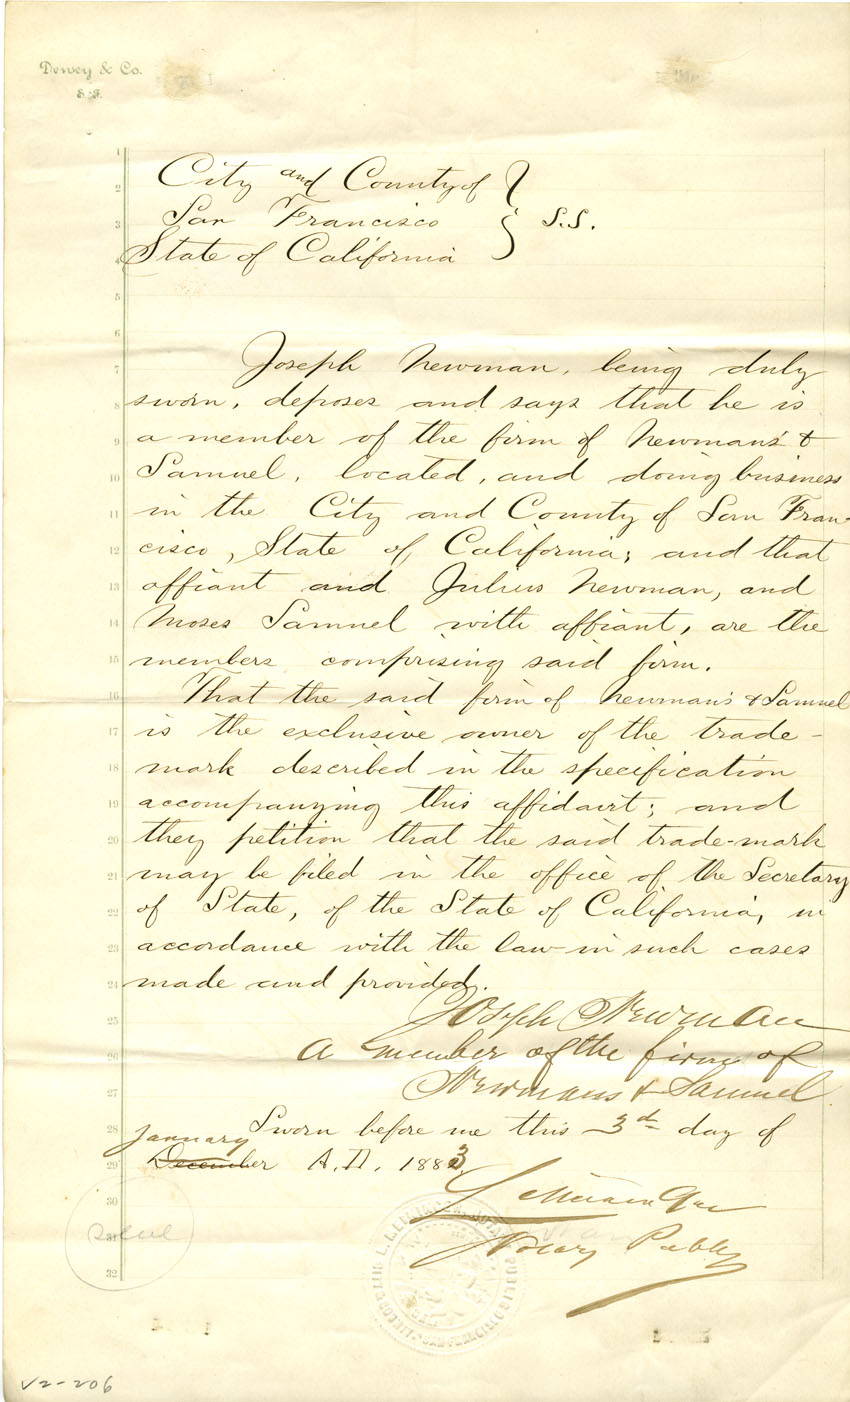 Dewey & Co.
S.F.
1
2
3
4
5
6
7
8
9
10
11
12
13
14
15
16
17
18
19
20
21
22
23
24
25
26
27
28
29
30
31
32
City and County of
San Francisco } S.S.
State of California
Joseph Newman, being duly
sworn, deposes and says that he is
a member of the firm of Newmans &
Samuel, located, and doing business
in the City and County of San Fran-
cisco, State of California; and that
affiant and Julius Newman, and
Moses Samuel with affiant, are the
members comprising said firm.
That the said firm of Newmans & Samuel
is the exclusive owner of the trade-
mark described in the specification
accompanying this affidavit; and
they petition that the said trade-mark
may be filed in the office of the Secretary
of State, of the State of California, in
accordance with the law in such cases
made and provided.
Joseph Newman
A member of the firm of
Newmans & Samuel
Sworn before me this 3d day of
January
December A.D. 1883
Notary Public
NOTARY PUBLIC
SAN FRANCISCO
V2-206